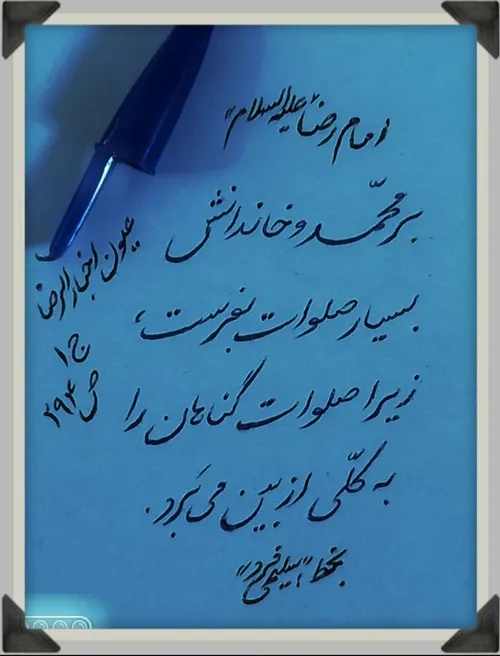 امام رضا "علیه السلام"
بر محمّد و خاندانش
بسیار صلوات بفرست،
زیرا صلوات گناهان را
به کلّی از بین می‌بَرد.
عیون اخبار الرضا
ج ۱
ص ۲۹۴
بخط